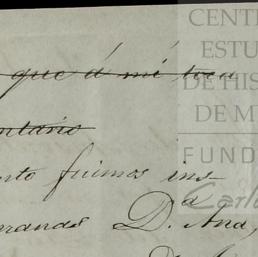 que á mi toca
ntario
nto fuimos ins
D.ª Ana,
CENT
ESTU
DE HIS
DE M
FUND
Carlo